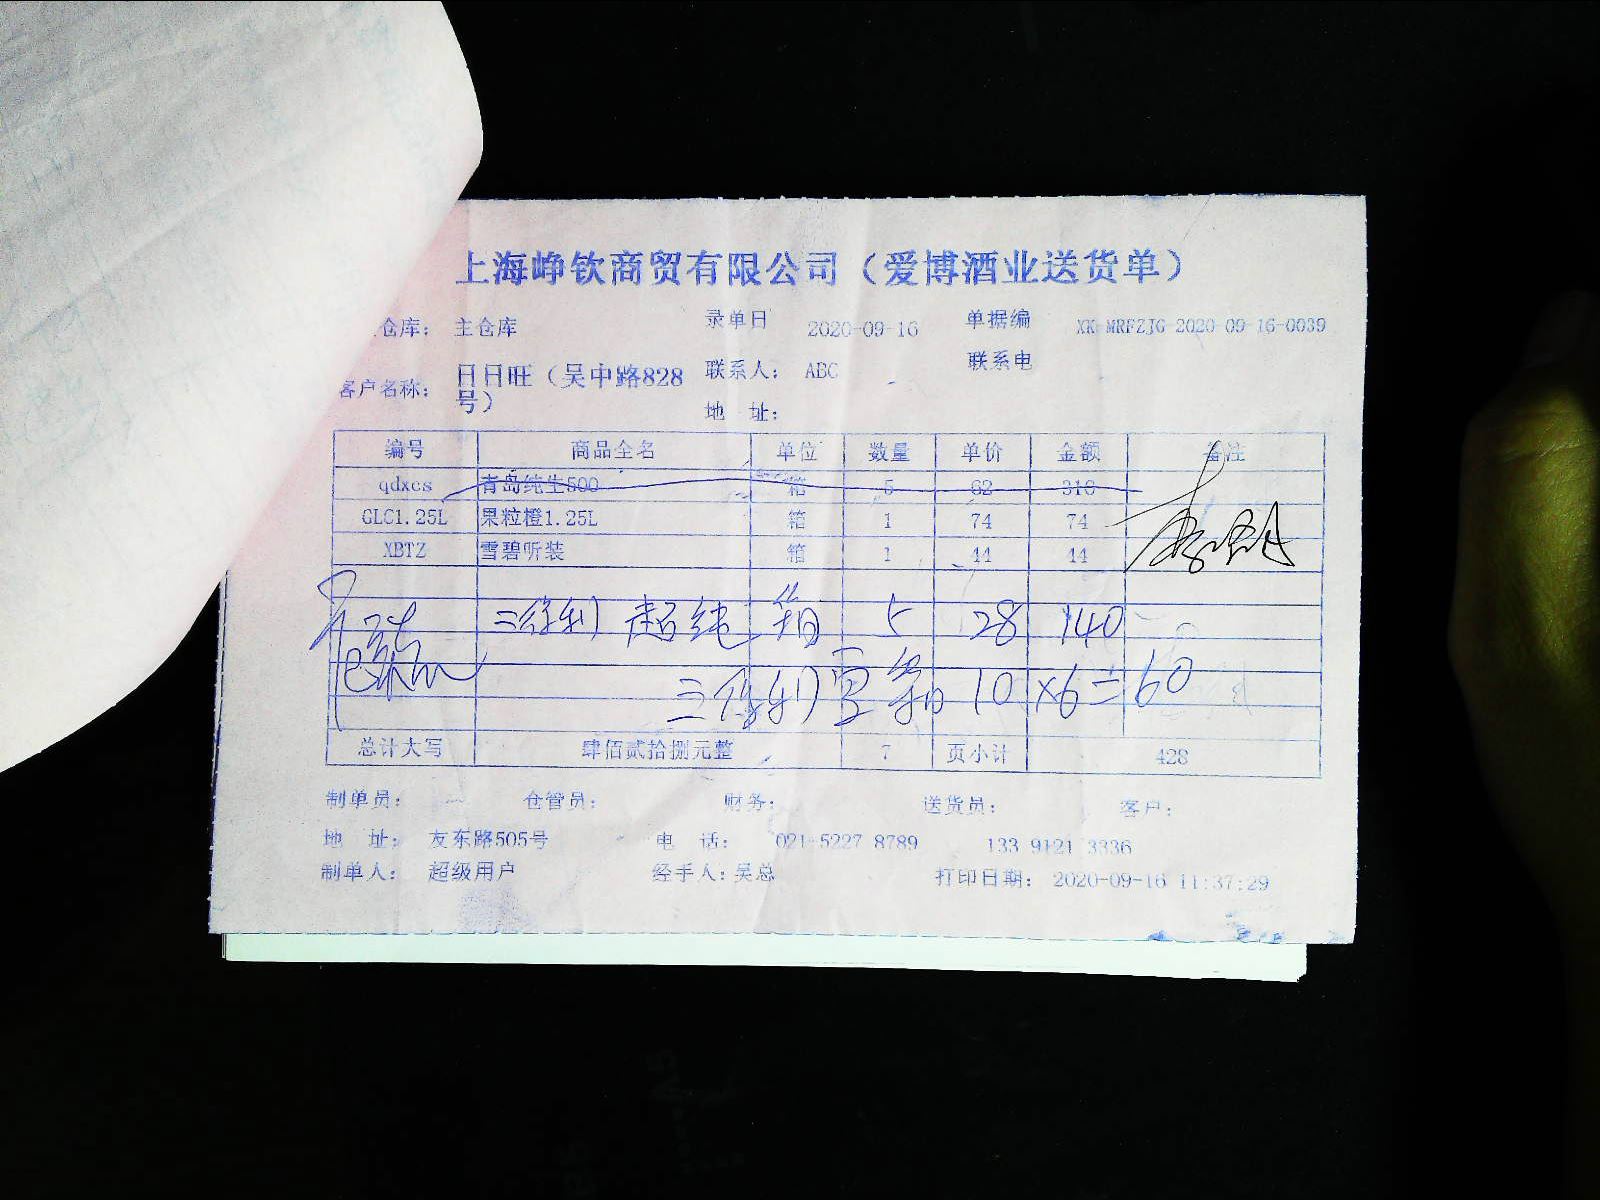 上海峥钦商贸有限公司（爱博酒业送货单）
仓库： 主仓库 录单日 2020-09-16 单据编 XK-MRFZJG-2020-09-16-0039
客户名称： 日日旺（吴中路828号） 联系人： ABC 联系电
地 址：
编号 商品全名 单位 数量 单价 金额 备注
qdxcs 青岛纯生500 箱 5 62 310
GLC1.25L 果粒橙1.25L 箱 1 74 74
XBTZ 雪碧听装 箱 1 44 44
三得利 超纯 箱 5 28 140
三得利 10 ×6=60
总计大写 肆佰贰拾捌元整 7 页小计 428
制单员： 仓管员： 财务： 送货员： 客户：
地 址： 友东路505号 电 话： 021-5227 8789 133 9121 3336
制单人： 超级用户 经手人：吴总 打印日期： 2020-09-16 11:37:29